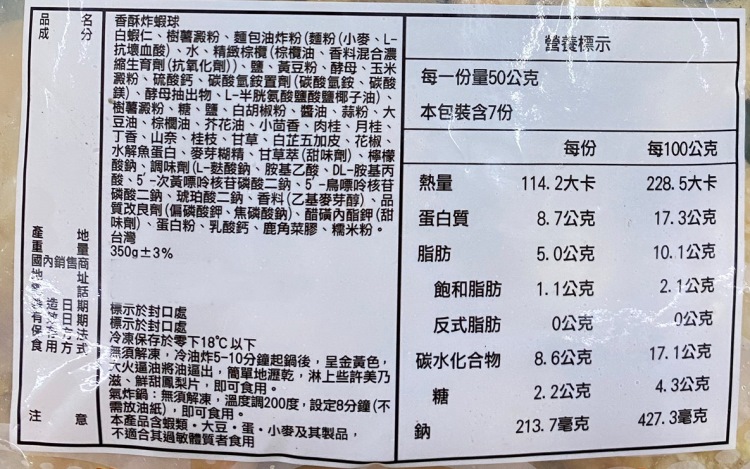 品名 香酥炸蝦球
成分 白蝦仁、樹薯澱粉、麵包油炸粉(麵粉(小麥、L-
抗壞血酸)、水、精緻棕欖(棕欖油、香料混合濃
縮生育劑(抗氧化劑))、鹽、黃豆粉、酵母、玉米
澱粉、硫酸鈣、碳酸氫銨置劑(碳酸氫銨、碳酸
鎂)、酵母抽出物、L-半胱氨酸鹽酸鹽椰子油)、
樹薯澱粉、糖、鹽、白胡椒粉、醬油、蒜粉、大
豆油、棕櫚油、芥花油、小茴香、肉桂、月桂、
丁香、山奈、桂枝、甘草、白芷五加皮、花椒、
水解魚蛋白、麥芽糊精、甘草萃(甜味劑)、檸檬
酸鈉、調味劑(L-麩酸鈉、胺基乙酸、DL-胺基丙
酸、5'-次黃嘌呤核苷磷酸二鈉、5'-鳥嘌呤核苷
磷酸二鈉、琥珀酸二鈉、香料(乙基麥芽醇)、品
質改良劑(偏磷酸鉀、焦磷酸鈉)、醋磺內酯鉀(甜
味劑)、蛋白粉、乳酸鈣、鹿角菜膠、糯米粉。
產地 台灣
重量 350g±3%
國內銷售商
地址
話
造日期 標示於封口處
有日期 標示於封口處
保方法 冷凍保存於零下18℃以下
食用方式 無須解凍，冷油炸5-10分鐘起鍋後，呈金黃色，
大火逼油將油逼出，簡單地瀝乾，淋上些許美乃
滋、鮮甜鳳梨片，即可食用。
氣炸鍋：無須解凍，溫度調200度，設定8分鐘(不
需放油紙)，即可食用。
注意 本產品含蝦類・大豆・蛋・小麥及其製品，
不適合其過敏體質者食用
營養標示
每一份量50公克
本包裝含7份
每份 每100公克
熱量 114.2大卡 228.5大卡
蛋白質 8.7公克 17.3公克
脂肪 5.0公克 10.1公克
飽和脂肪 1.1公克 2.1公克
反式脂肪 0公克 0公克
碳水化合物 8.6公克 17.1公克
糖 2.2公克 4.3公克
鈉 213.7毫克 427.3毫克